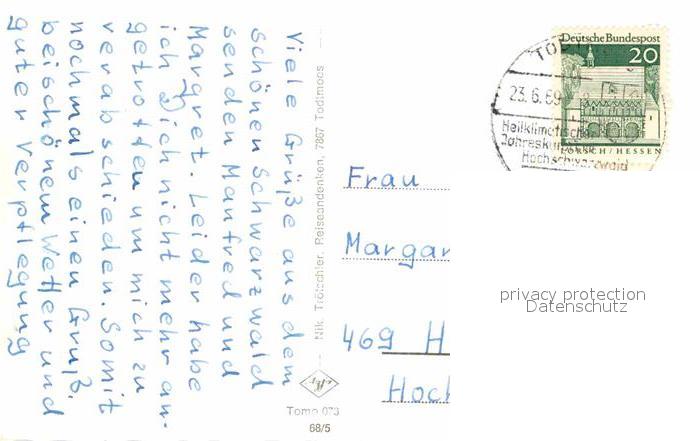 Viele Grüße aus dem
schönen Schwarzwald
senden Manfred und
Margret. Leider habe
ich Dich nicht mehr an-
getroffen um mich zu
verabschieden. Somit
nochmals einen Gruß.
bei schönem Wetter und
guter Verpflegung
Nik. Trötschler, Reiseandenken, 7867 Todtmoos
Tomo 073
68/5
Deutsche Bundespost
20
LORSCH/HESSEN
23.6.69
Heilklimatischer
Hochschwarzwald
Frau
Margar
469 H
Hoch
privacy protection
Datenschutz